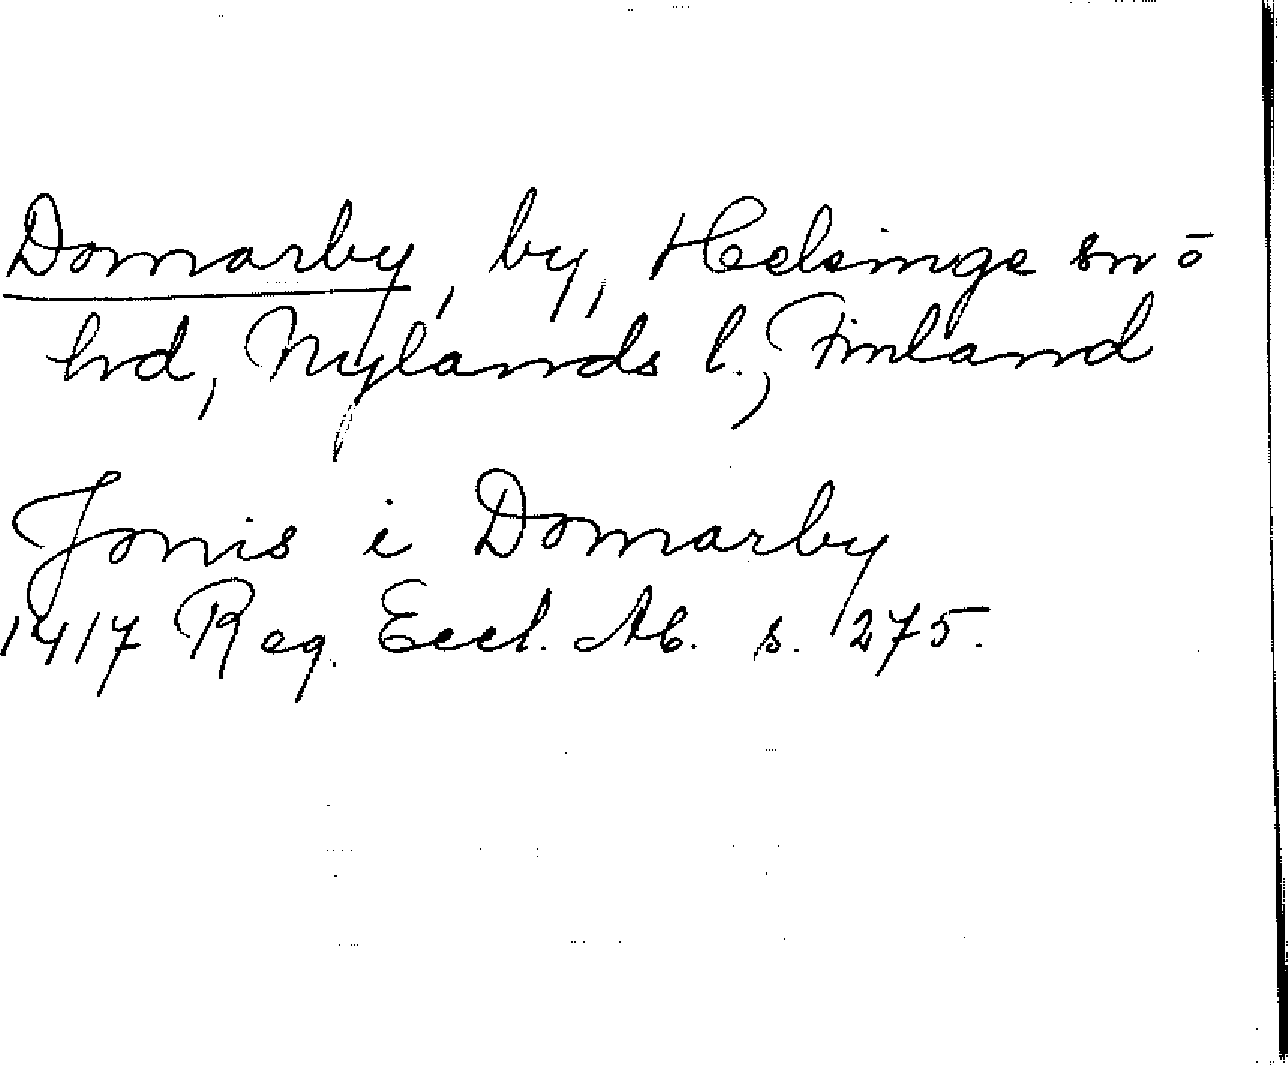 Domarby, by, Helsinge sn o
hd, Nylands l., Finland
Jonis i Domarby
1417 Reg. Eccl. Ab. s. 275.